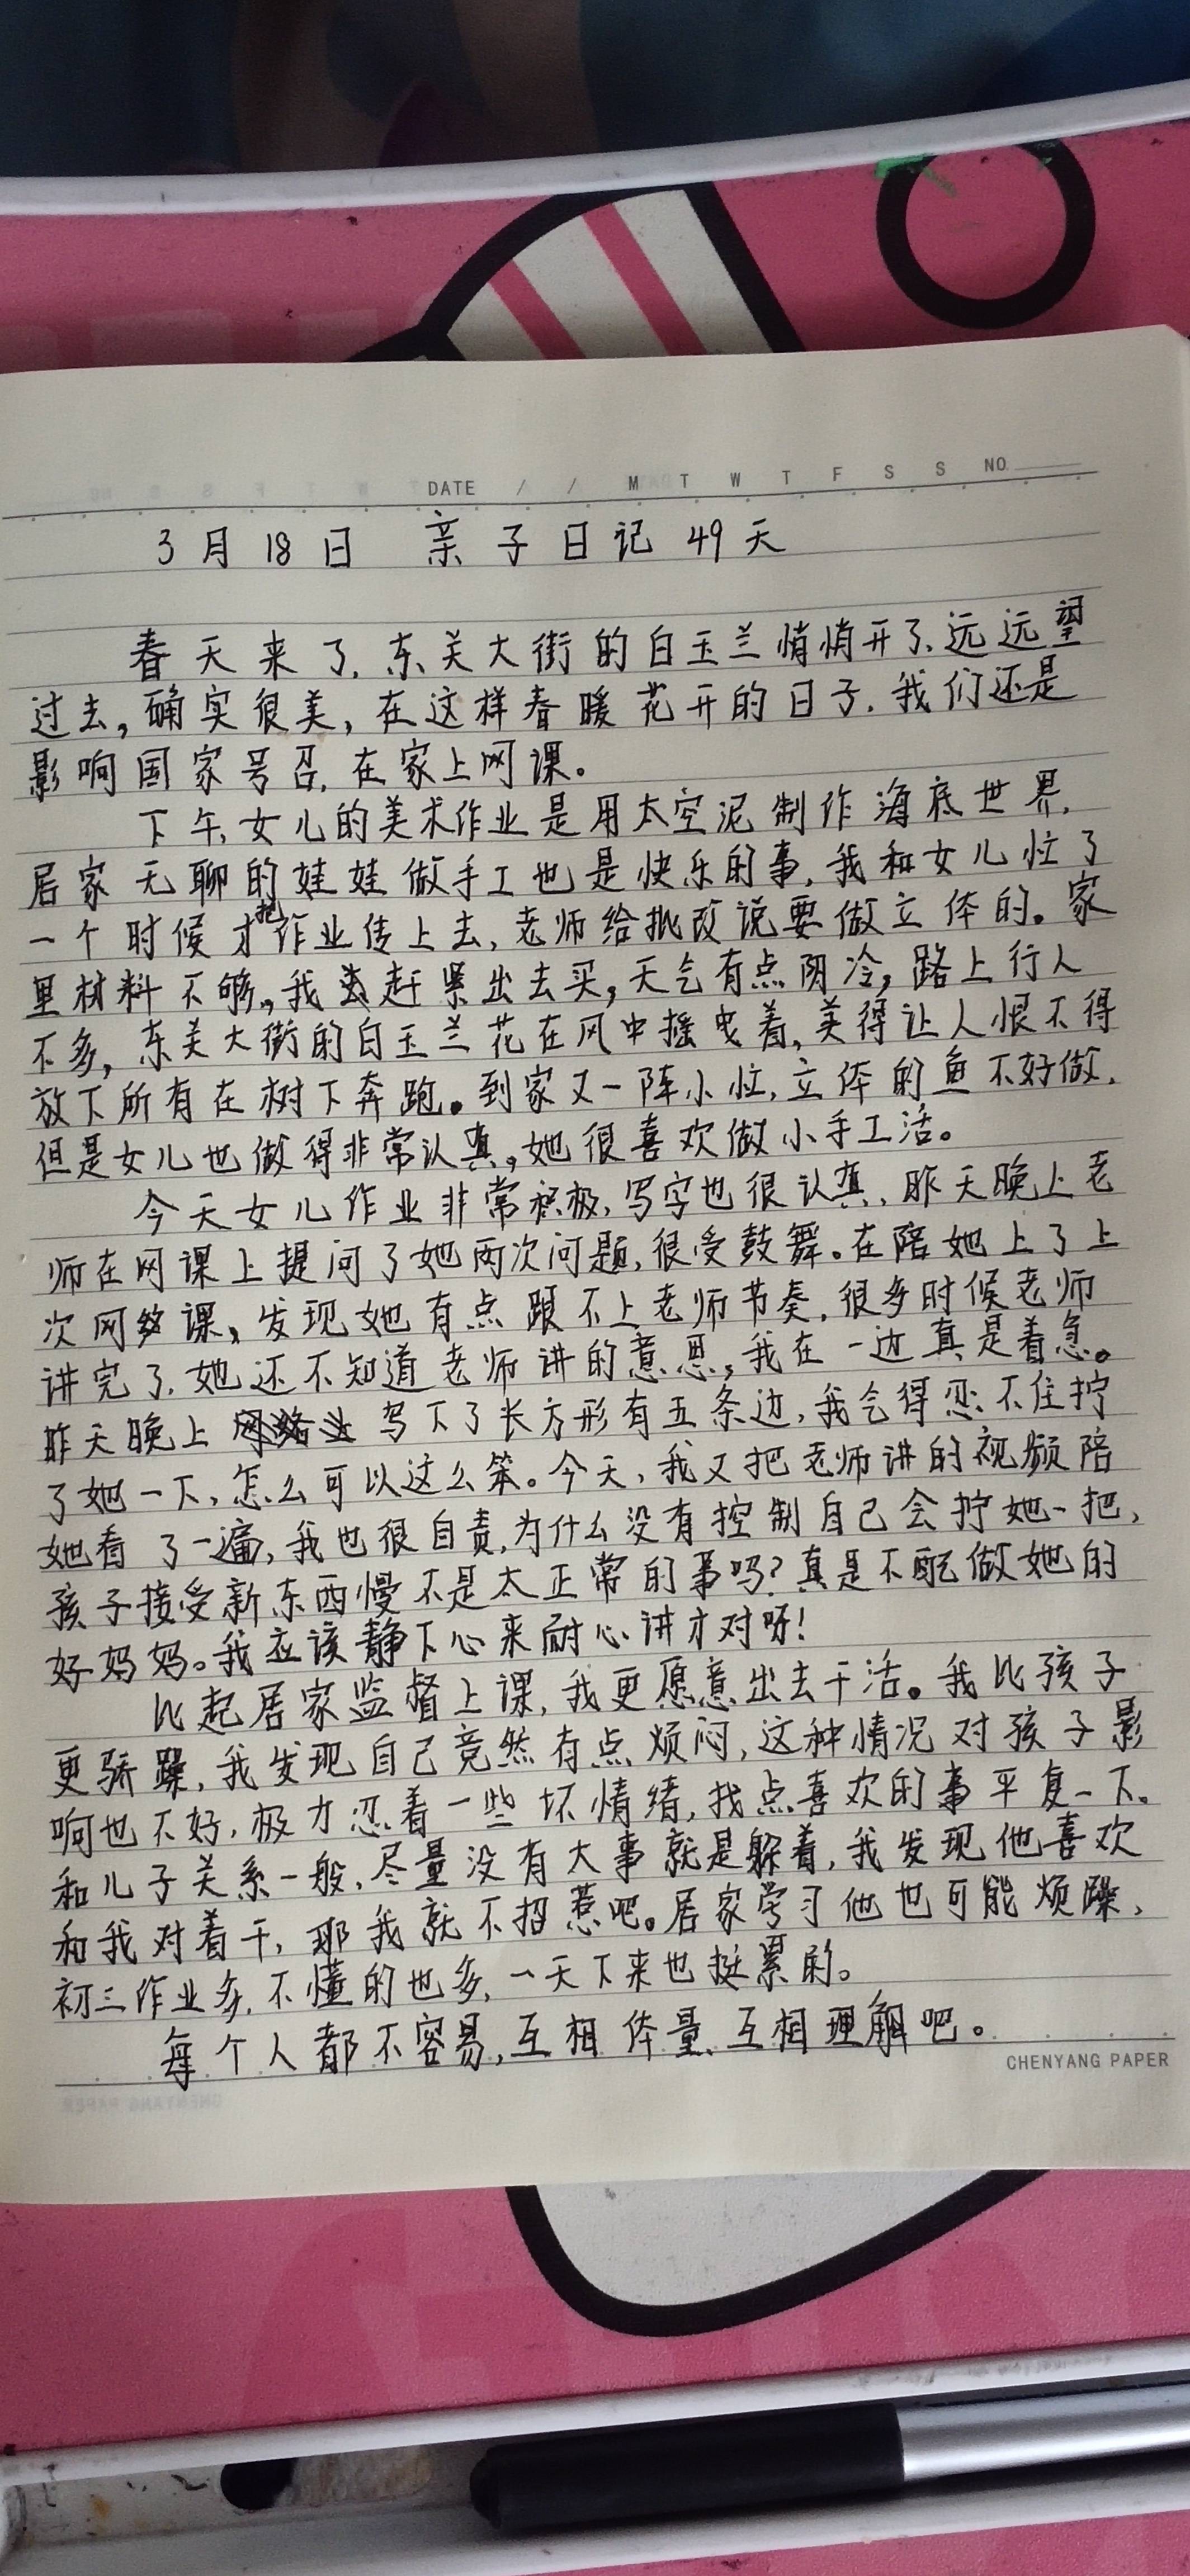 DATE / / M T W T F S S NO.
3月18日 亲子日记49天
春天来了,东关大街的白玉兰悄悄开了,远远望
过去,确实很美,在这样春暖花开的日子,我们还是
影响国家号召,在家上网课。
下午,女儿的美术作业是用太空泥制作海底世界,
居家无聊的娃娃做手工也是快乐的事,我和女儿忙了
一个时候才把作业传上去,老师给批改说要做立体的。家
里材料不够,我赶紧出去买,天气有点阴冷,路上行人
不多,东关大街的白玉兰花在风中摇曳着,美得让人恨不得
放下所有在树下奔跑。到家又一阵小忙,立体的鱼不好做,
但是女儿也做得非常认真,她很喜欢做小手工活。
今天女儿作业非常积极,写字也很认真,昨天晚上老
师在网课上提问了她两次问题,很受鼓舞。在陪她上了上
次网络课,发现她有点跟不上老师节奏,很多时候老师
讲完了,她还不知道老师讲的意思,我在一边真是着急。
昨天晚上 写下了长方形有五条边,我气得忍不住拧
了她一下,怎么可以这么笨。今天,我又把老师讲的视频陪
她看了一遍,我也很自责,为什么没有控制自己会拧她一把,
孩子接受新东西慢不是太正常的事吗?真是不配做她的
好妈妈。我应该静下心来耐心讲才对呀!
比起居家监督上课,我更愿意出去干活。我比孩子
更骄躁,我发现自己竟然有点烦闷,这种情况对孩子影
响也不好,极力忍着一些坏情绪,找点喜欢的事平复一下。
和儿子关系一般,尽量没有大事就是躲着,我发现他喜欢
和我对着干,那我就不招惹吧。居家学习他也可能烦躁,
初三作业多,不懂的也多,一天下来也挺累的。
每个人都不容易,互相体量,互相理解吧。
CHENYANG PAPER